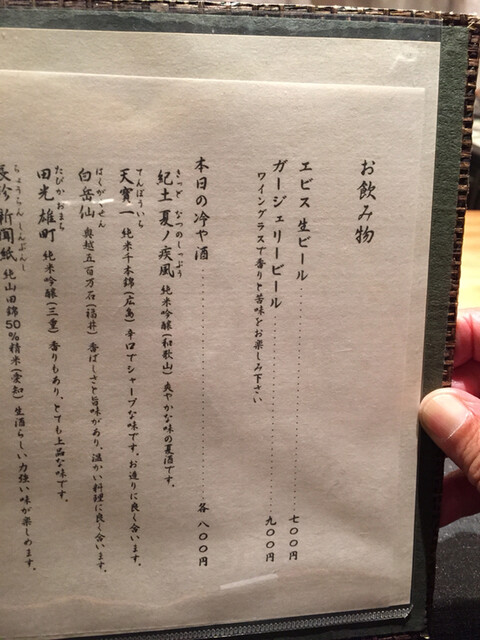 お飲み物
エビス 生ビール……………七〇〇円
ガージェリービール……………九〇〇円
ワイングラスで香りと苦味をお楽しみ下さい
本日の冷や酒……………各 八〇〇円
きっど なつのしっぷう
紀土 夏ノ疾風 純米吟醸(和歌山) 爽やかな味の夏酒です。
てんぽういち
天寶一 純米千本錦(広島) 辛口でシャープな味です。お造りに良く合います。
はくがくせん
白岳仙 奥越五百万石(福井) 香ばしさと旨味があり、温かい料理に良く合います。
たびか おまち
田光 雄町 純米吟醸(三重) 香りもあり、とても上品な味です。
ちょうちん しんぶんし
長珍 新聞紙 純山田錦50%精米(愛知) 生酒らしい力強い味が楽しめます。